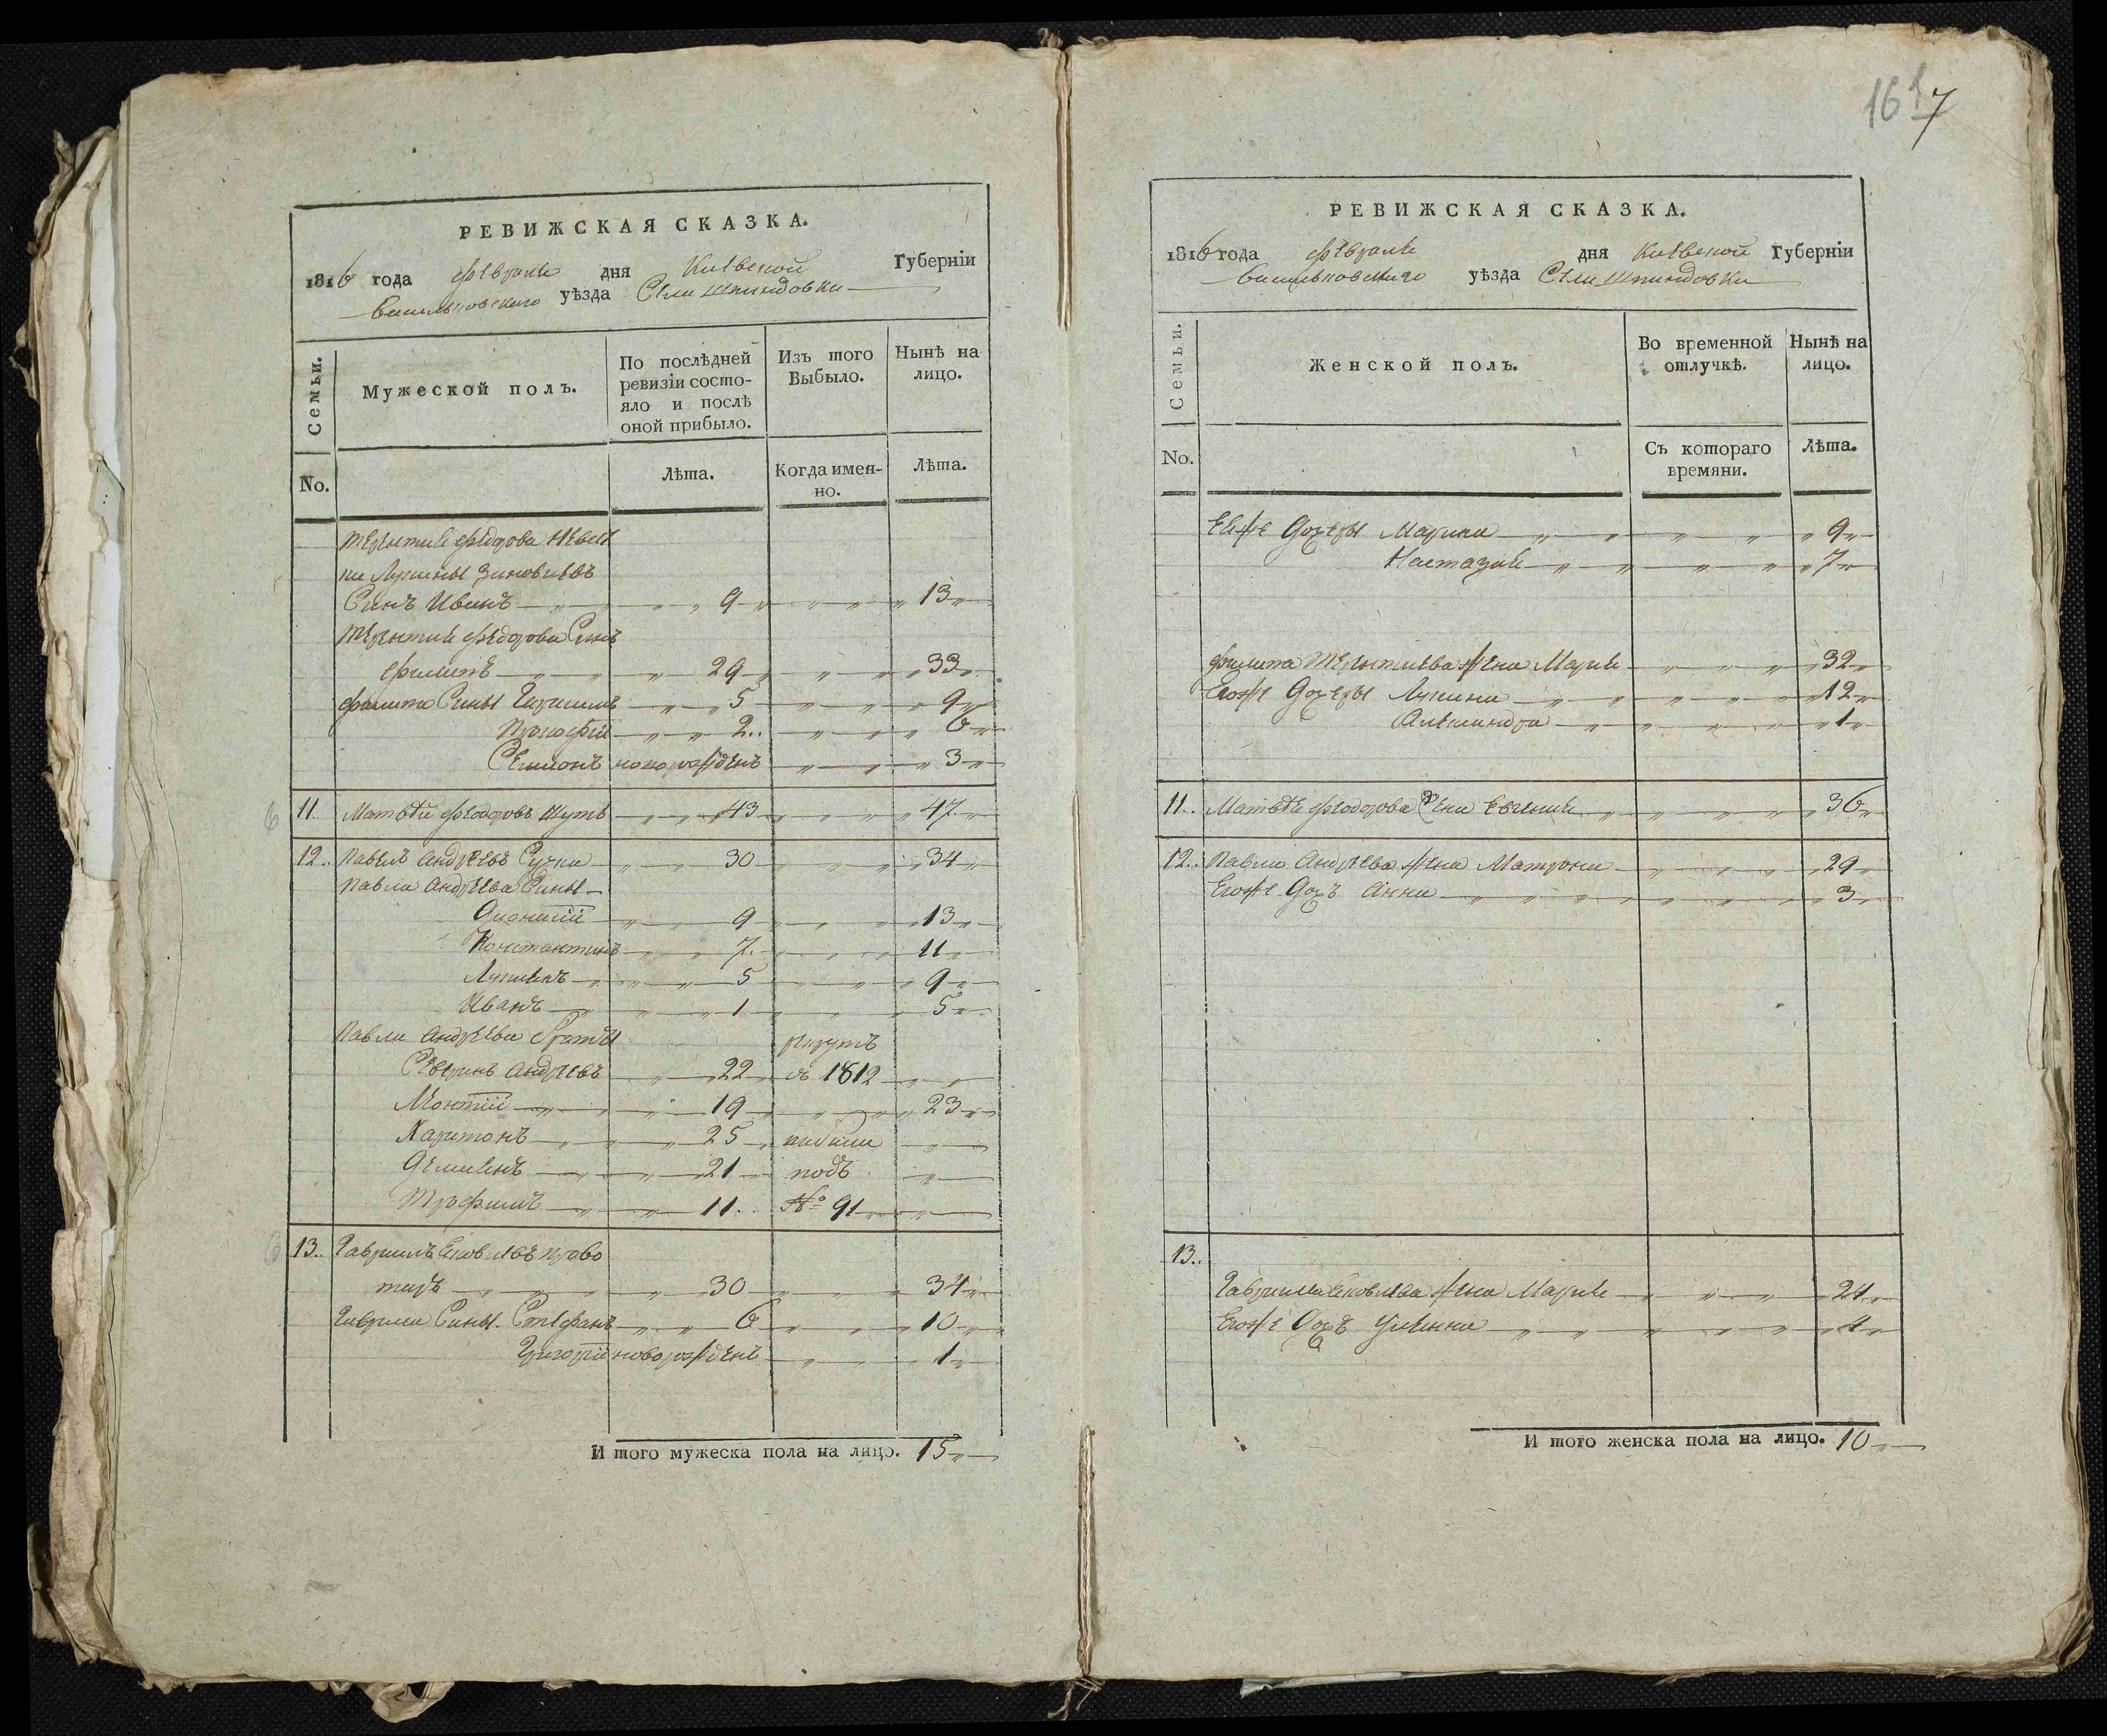 РЕВИЖСКАЯ СКАЗКА.
1816 года февраля дня Киевской Губерніи
Васильковского уѣзда Села Шпиндовки
Семьи.
Мужеской полъ.
По послѣдней ревизіи состояло и послѣ оной прибыло.
Изъ того Выбыло.
Нынѣ на лицо.
No.
Лѣта.
Когда именно.
Лѣта.
Терентия Федорова
Синъ Иванъ 9 13
Терентия Федорова Синъ
Филипъ 29 33
Филипа Сины 5 9
Прокофій 2 6
Семионъ новорожденъ 3
11. Матвѣй Феодоровъ Шутъ 43 47
12. Павелъ Андреевъ Сучка 30 34
Павла Андреева Сины
Дионисій 9 13
Константинъ 7 11
Лукианъ 5 9
Иванъ 1 5
Павла Андреева Браты рекрутъ
Северинъ Андреевъ 22 въ 1812
Леонтій 19 23
Харитонъ 25
Демианъ 21 подъ
Трофимъ 11 № 91
13. Гавриилъ Яковлевъ Крово
таръ 30 34
Гаврила Сины Стефанъ 6 10
Григорій новорожденъ 1
И того мужеска пола на лицо. 15
1617
РЕВИЖСКАЯ СКАЗКА.
1816 года февраля дня Киевской Губерніи
Васильковского уѣзда Села Шпиндовки
Семьи.
Женской полъ.
Во временной отлучкѣ.
Нынѣ на лицо.
No.
Съ котораго времяни.
Лѣта.
Еяже Дочеры Марина 9
Настазия 7
Филипа Терентиева жена Мария 32
Егоже Дочеры Лукина 12
Александра 1
11. Матвѣя Феодорова жена Евгения 36
12. Павла Андреева жена Матрона 29
Егоже Дочъ Анна 3
13.
Гавриила Яковлева жена Мария 24
Егоже Дочъ Улианна 4
И того женска пола на лицо. 10